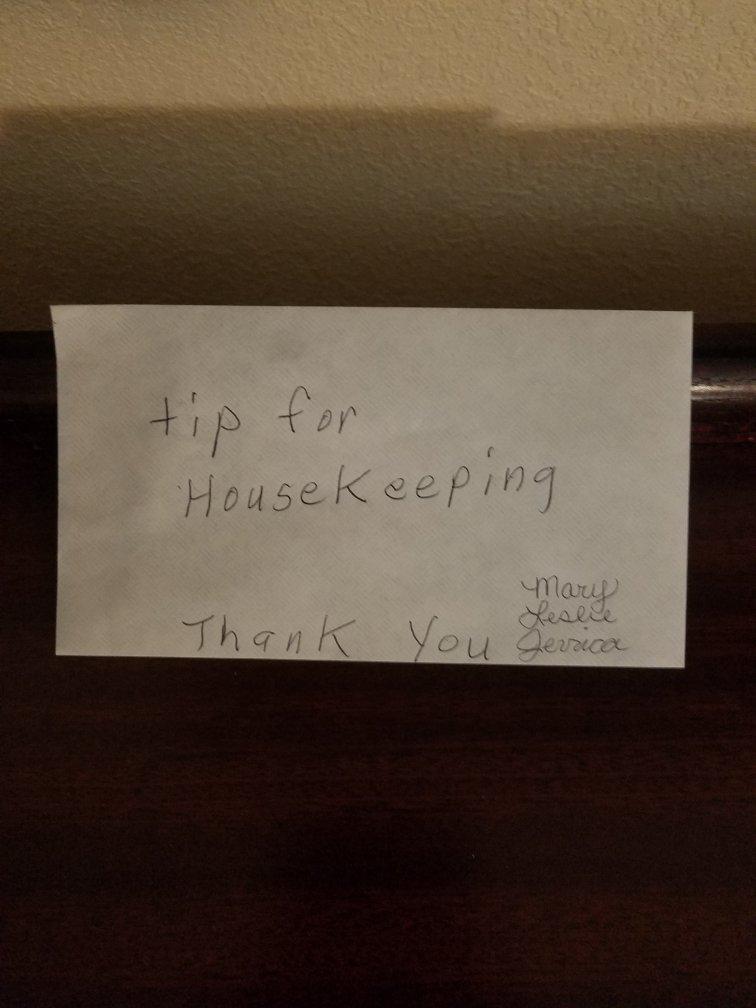 tip for
Housekeeping
Thank You
Mary
Leslie
Jerrica